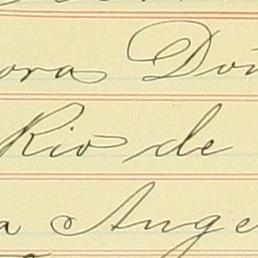 ora Do
Rio de
a Ange